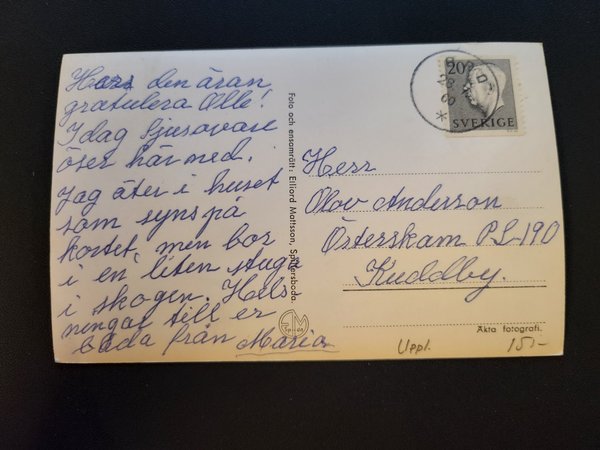 Har den äran
gratulera Olle!
Idag ljusavase
öser här ned.
Jag äter i huset
som syns på
kortet, men bor
i en liten stuga
i skogen. Häls
ningar till er
båda från Maria
Foto och ensamrätt: Elliord Mattsson, Spillersboda.
20
SVERIGE
Herr
Olov Andersson
Österskam PL-190
Kuddby.
Äkta fotografi.
Uppl.
15:-